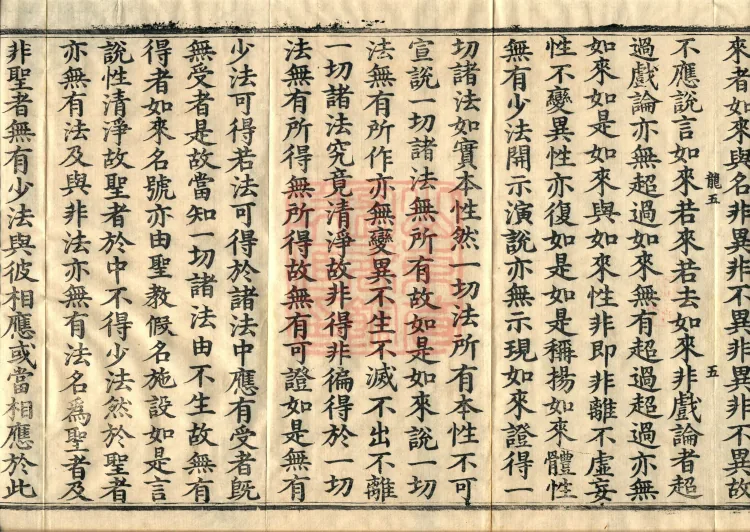 來者如來與名非異非不異非異非不異故
龍五　五
不應說言如來若來若去如來非戲論者超
過戲論亦無超過如來無有超過超過亦無
如來如是如來與如來性非即非離不虛妄
性不變異性亦復如是如是稱揚如來體性
無有少法開示演說亦無示現如來證得一
切諸法如實本性然一切法所有本性不可
宣說一切諸法無所有故如是如來說一切
法無有所作亦無變異不生不滅不出不離
一切諸法究竟清淨故非得非徧得於一切
法無有所得無所得故無有可證如是無有
少法可得若法可得於諸法中應有受者旣
無受者是故當知一切諸法由不生故無有
得者如來名號亦由聖教假名施設如是言
說性清淨故聖者於中不得少法然於聖者
亦無有法及與非法亦無有法名爲聖者及
非聖者無有少法與彼相應或當相應於此